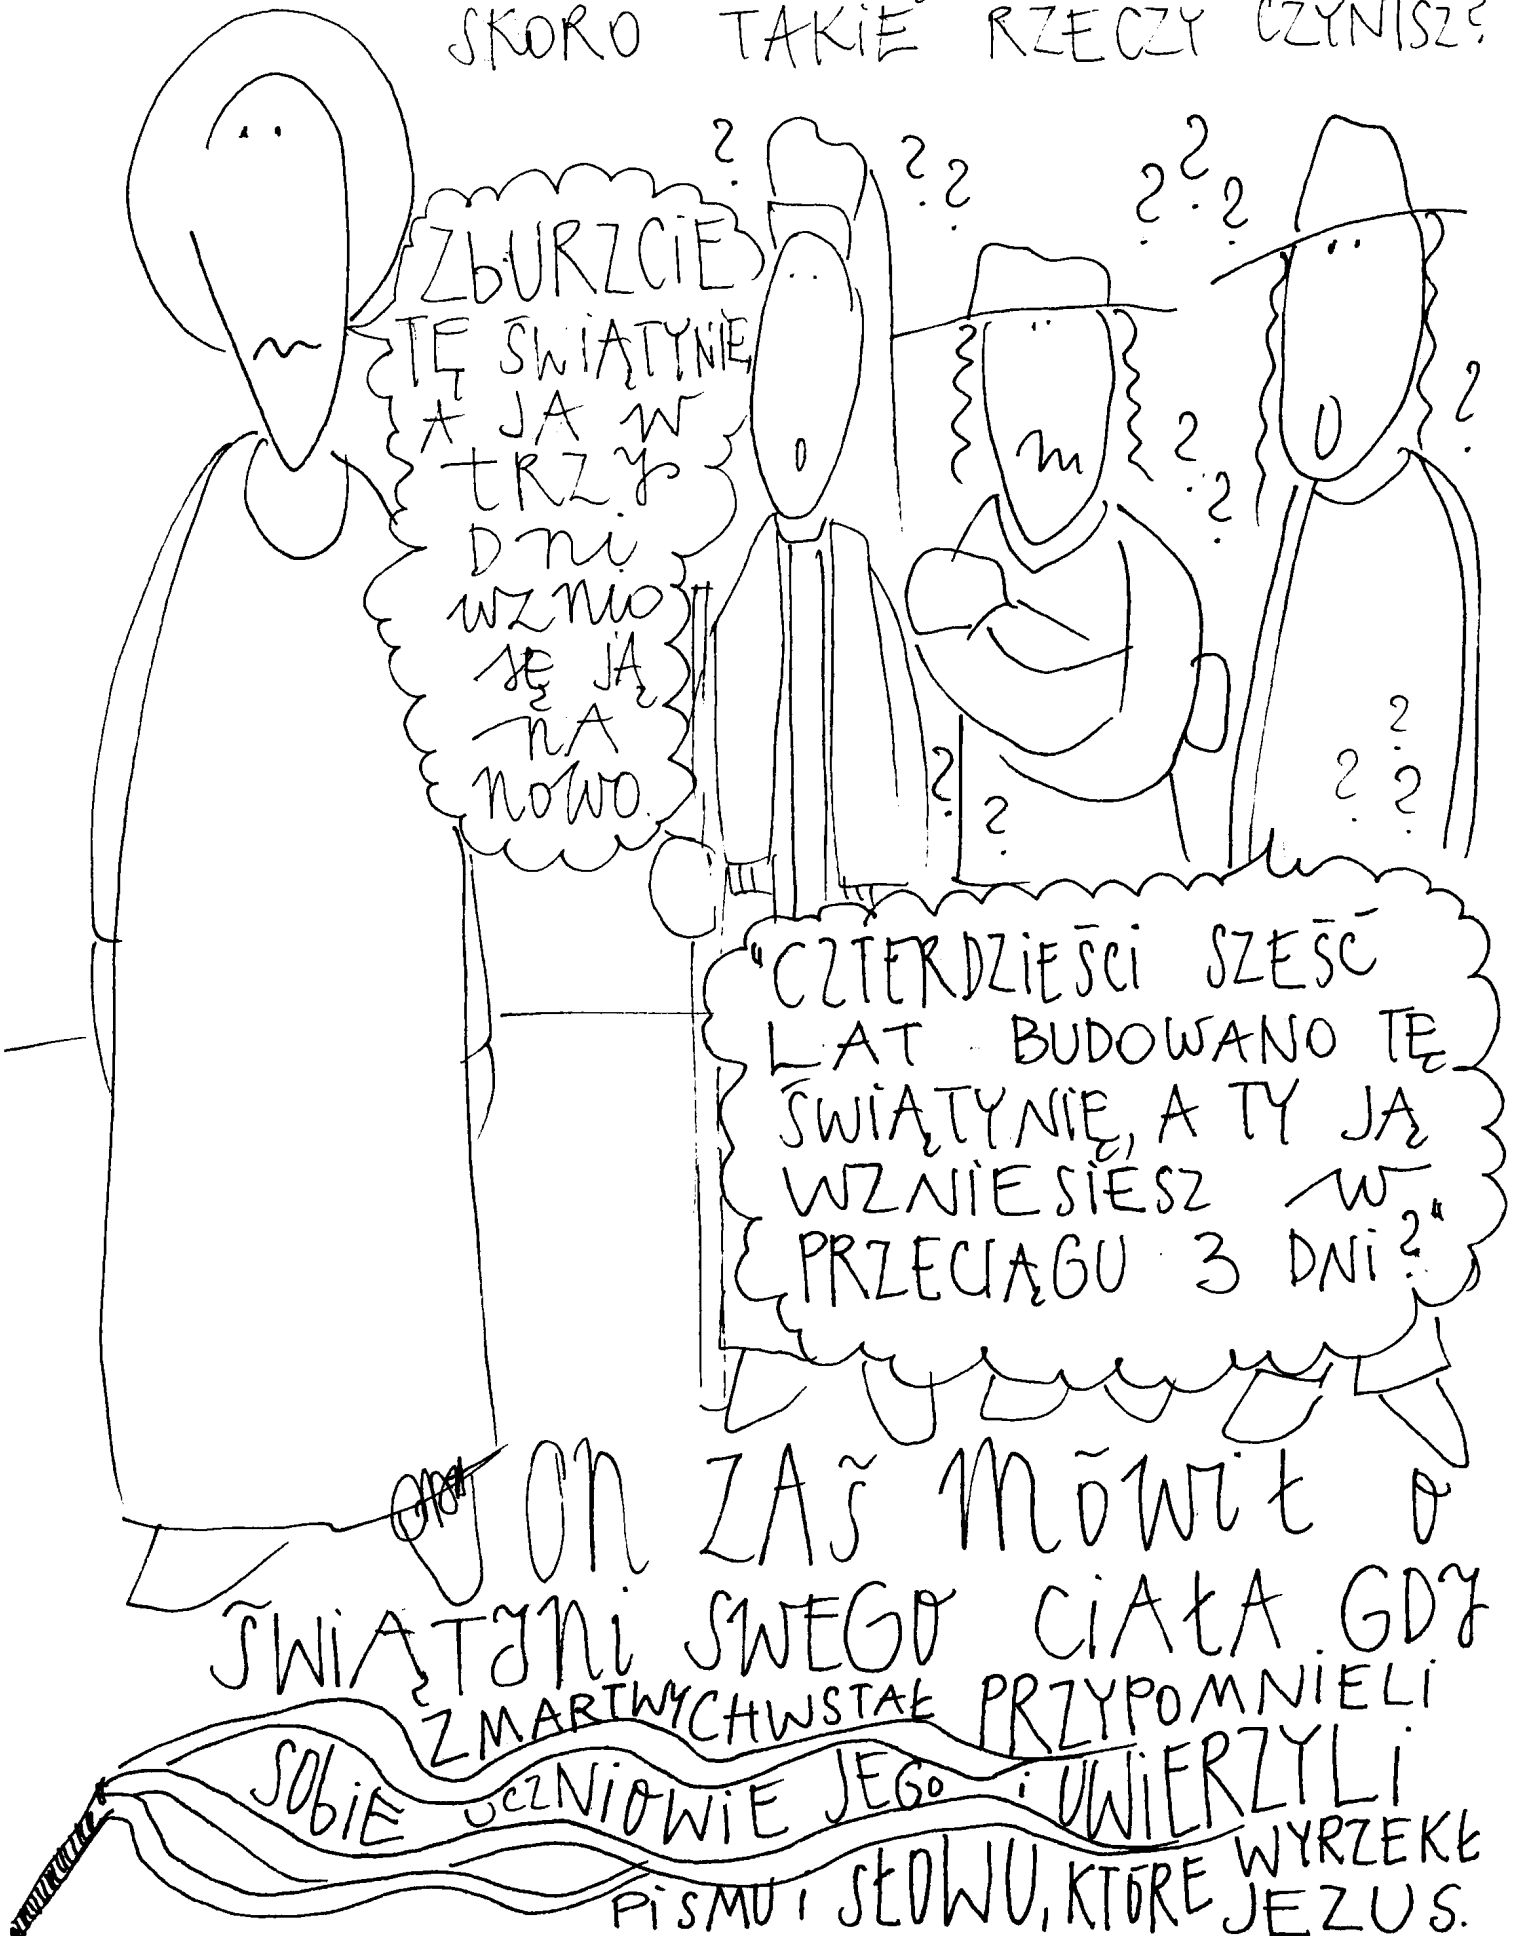 SKORO TAKIE RZECZY CZYNISZ?
ZBURZCIE
TĘ ŚWIĄTYNIĘ
A JA W
TRZY
DNI
WZNIO
SĘ JĄ
NA
NOWO.
"CZTERDZIEŚCI SZEŚĆ
LAT BUDOWANO TĘ
ŚWIĄTYNIĘ, A TY JĄ
WZNIESIESZ W
PRZECIĄGU 3 DNI?"
ON ZAŚ MÓWIŁ O
ŚWIĄTYNI SWEGO CIAŁA. GDY
ZMARTWYCHWSTAŁ PRZYPOMNIELI
SOBIE UCZNIOWIE JEGO I UWIERZYLI
PISMU I SŁOWU, KTÓRE WYRZEKŁ
JEZUS.